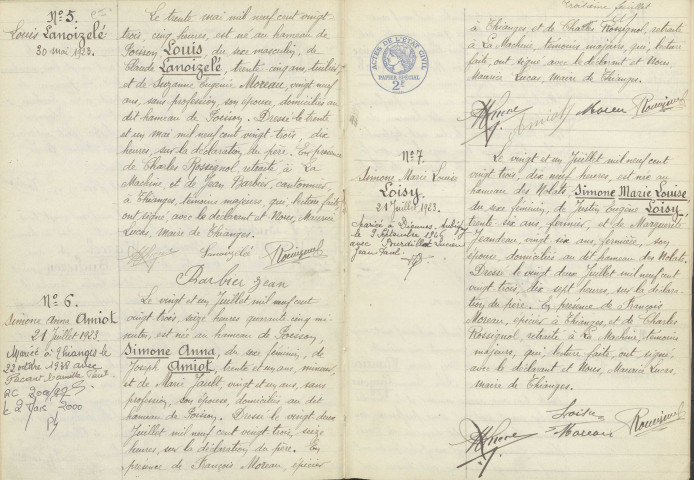 N° 5.
Louis Lanoizelé
30 mai 1923.
Le trente mai mil neuf cent vingt-
trois, cinq heures, est né au hameau de
Poisson Louis, du sexe masculin, de
Claude Lanoizelé, trente cinq ans,
et de Suzanne Eugénie Moreau, vingt neuf
ans, sans profession, son épouse, domiciliés au
dit hameau de Poisson. Dressé le trente
et un mai mil neuf cent vingt trois, dix
heures, sur la déclaration du père. En présence
de Charles Rossignol, retraité, à La
Machine, et de Jean Barbier, cantonnier,
à Thianges, témoins majeurs, qui, lecture faite,
ont signé, avec le déclarant et Nous, Maurice
Lucas, maire de Thianges.
Lanoizelé Rossignol
Barbier Jean
N° 6.
Simone Anna Amiot
21 Juillet 1923.
Marié à Thianges le
22 octbre 1938 avec
Paul
Le vingt et un Juillet mil neuf cent
vingt trois, seize heures quarante cinq mi-
nutes, est née au hameau de Poisson,
Simone Anna, du sexe féminin, de
Joseph Amiot, trente et un ans, mineur,
et de Marie Jault, vingt et un ans, sans
profession, son épouse, domiciliés au dit
hameau de Poisson. Dressé le vingt deux
Juillet mil neuf cent vingt trois, seize
heures, sur la déclaration du père. En
présence de François Moreau, épicier
feuillet
à Thianges, et de Charles Rossignol, retraité
à La Machine, témoins majeurs, qui, lecture
faite, ont signé avec le déclarant et Nous
Maurice Lucas, maire de Thianges.
Amiot Moreau Rossignol
ACTES DE L'ÉTAT CIVIL
PAPIER SPÉCIAL
2F
N° 7.
Simone Marie Louise
Loisy.
21 Juillet 1923.
Mariée à
le 9 Septembre 1944
avec Lucien
Jean Paul.
Le vingt et un Juillet mil neuf cent
vingt trois, dix neuf heures, est née au
hameau des Nolats, Simone Marie Louise
du sexe féminin, de Justin Eugène Loisy,
trente-six ans, fermier, et de Marguerite
Jeandeau, vingt six ans, fermière, son
épouse, domiciliés au dit hameau des Nolats.
Dressé le vingt deux Juillet mil neuf cent
vingt trois, dix sept heures, sur la déclara-
tion du père. En présence de François
Moreau, épicier à Thianges, et de Charles
Rossignol, retraité à La Machine, témoins
majeurs, qui, lecture faite, ont signé,
avec le déclarant et Nous, Maurice Lucas,
maire de Thianges.
Loisy
Moreau Rossignol